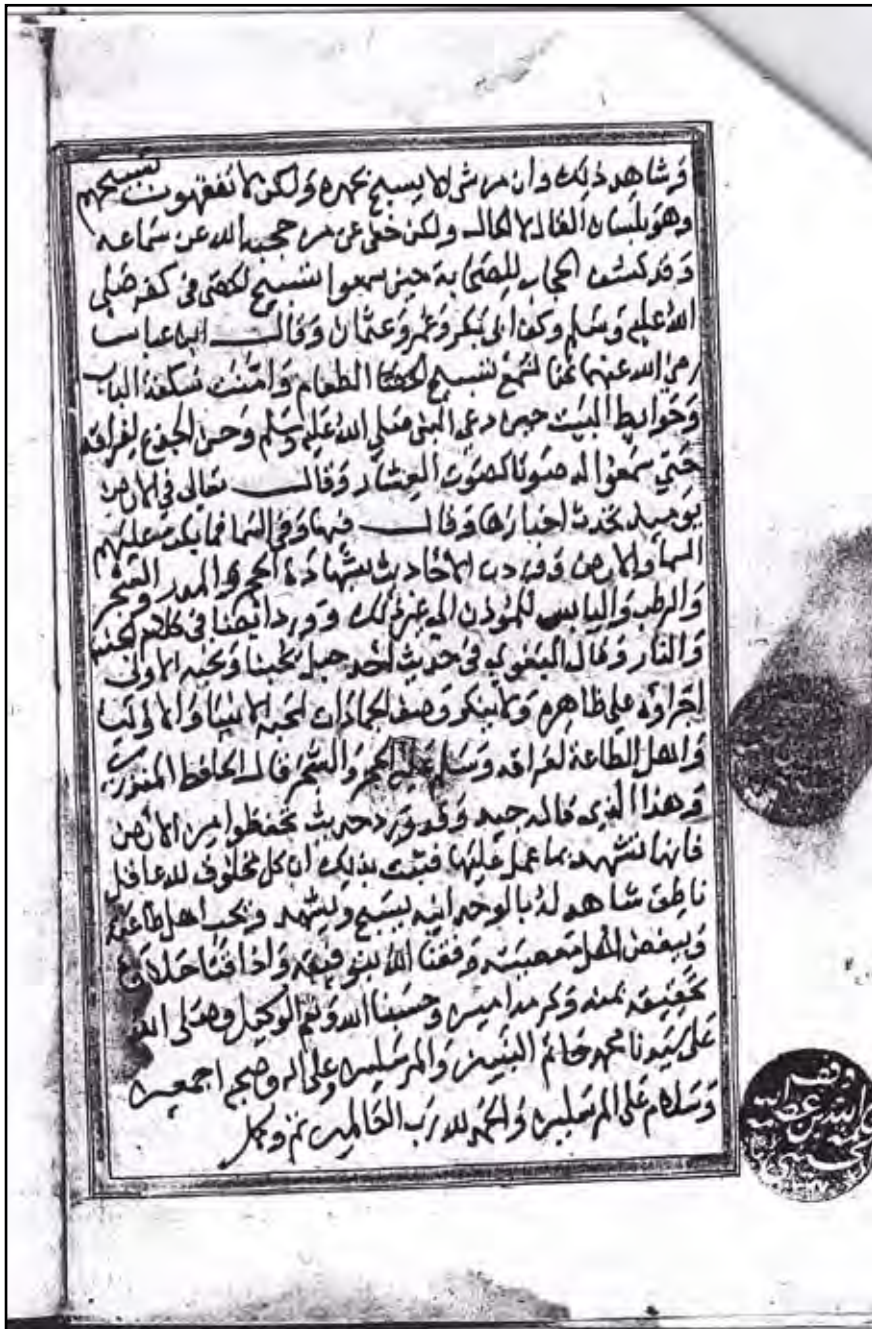 وشاهد ذلك وان من شي الا يسبح بحمده ولكن لا تفقهون تسبيحهم
وهو بلسان القال لا الحال ولكن خفي عن من حجبه الله عن سماعه
وقد كشف الحجاب للصحابة حين سمعوا تسبيح الحصى في كفه صلى
الله عليه وسلم وكف ابي بكر وعمر وعثمان وقال ابن عباس
رضي الله عنهما كنا نسمع تسبيح الطعام وامنت سكفة الباب
وحوايط البيت حين دعى النبي صلي الله عليه وسلم وحن الجذع لفراقه
حتي سمعوا له صوتا كصوت العشار وقال تعالى في الارض
يوميذ تحدث اخبارها وقال فيها وفي السما فما بكت عليهم
السما والارض وفي الاحاديث بشهادة الحجر والمدر والشجر
والرطب واليابس للموذن الي غير ذلك وورد ايضا في كلام الجنة
والنار وقال البغوي في حديث احد جبل يحبنا ونحبه الاولى
اجراؤه علي ظاهره ولا ينكر وصف الجمادات لمحبة الانبيا والاوليا
واهل الطاعة لفراقه وسلم عليه الحجر والشجر قال الحافظ المنذري
وهذا الذي قاله جيد وقد ورد حديث تحفظوا من الارض
فانها تشهد بما عمل عليها فثبت بذلك ان كل مخلوق لله عاقل
ناطق شاهد له بالوحدانيه يسبح ويشهد ويحب اهل طاعته
ويبغض اهل معصيته وفقنا الله بتوفيقه واذاقنا حلاوة
تحقيقه بمنه وكرمه امين وحسبنا الله ونعم الوكيل وصلى الله
على سيدنا محمد خاتم النبيين والمرسلين وعلى اله وصحبه اجمعين
وسلام على المرسلين والحمد لله رب العالمين تم وكمل
وقف
عبد الله بن عطية